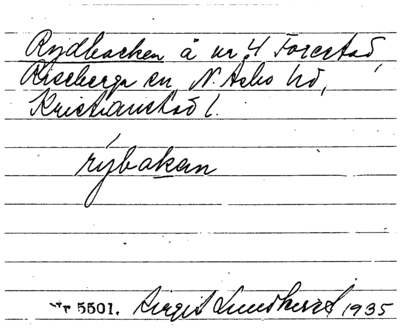 Rydbacken å nr 4 Forestad,
Riseberga sn, N. Åsbo hd,
Kristianstad l.
rybakan
Nr 5501. Birgit Lundkvist 1935